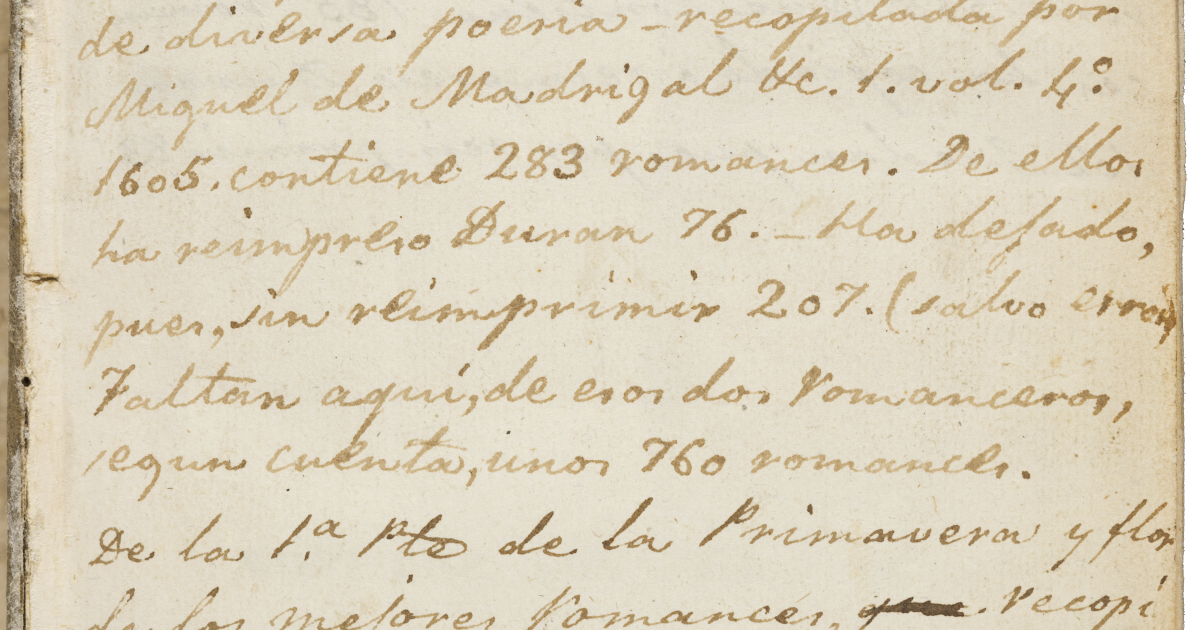 de diversa poesia – recopilada por
Miguel de Madrigal &c. 1. vol. 4.º
1605. contiene 283 romances. De ellos
ha reimpreso Duran 76. – Ha dejado,
pues, sin reimprimir 207. (salvo error)
Faltan aquí, de esos dos Romanceros,
segun cuenta, unos 760 romances.
De la 1.ª Pte de la Primavera y flor
de los mejores Romances, que. recopi